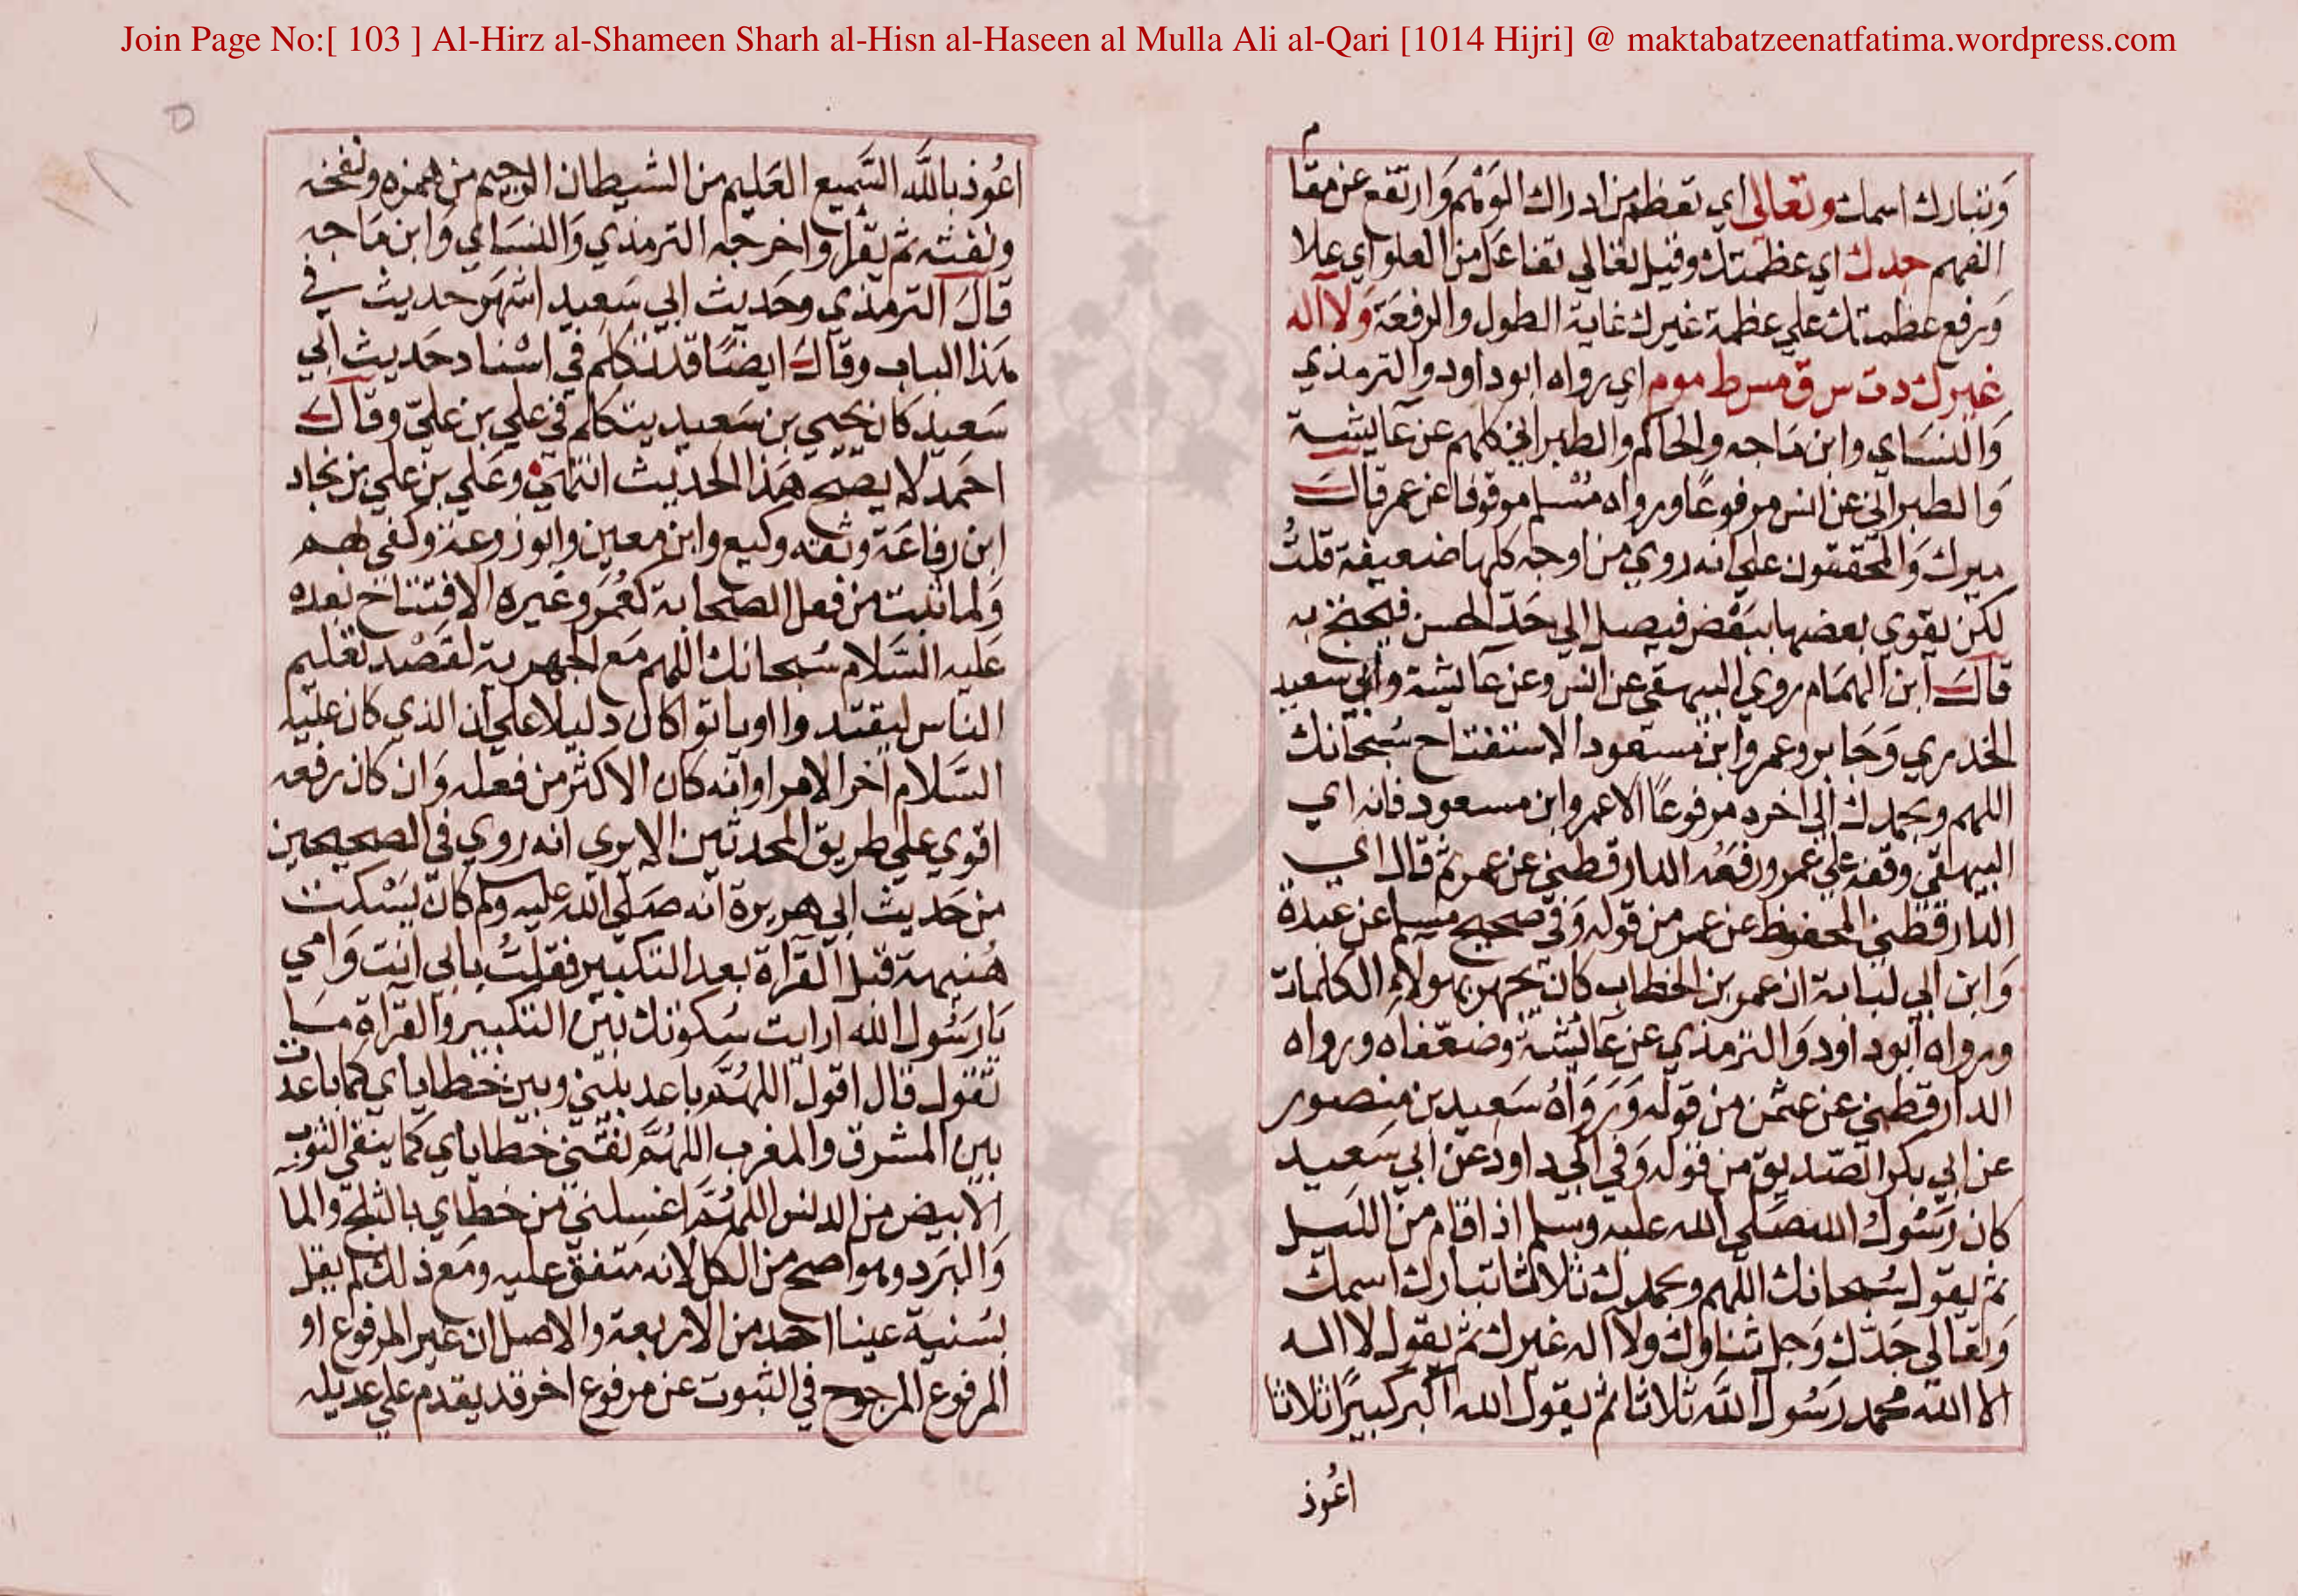 Join Page No:[ 103 ] Al-Hirz al-Shameen Sharh al-Hisn al-Haseen al Mulla Ali al-Qari [1014 Hijri] @ maktabatzeenatfatima.wordpress.com
م
وتبارك اسمك وتعالى اي تعظم من ادراك الوهم وارتفع عن مقا
الفهم جدك اي عظمتك وقيل تعالي تفاعل من العلو اي علا
ورفع عظمتك علي عظمة غيرك غاية الطول والرفعة ولا اله
غيرك دت س ق مس ط مو م اي رواه ابوداود والترمذي
والنساي وابن ماجه والحاكم والطبراني كلهم عن عايشة
والطبراني عن انس مرفوعا ورواه مسلم موقوفا عن عمر قال
ميرك والمحققون علي انه روي من اوجه كلها ضعيفة قلت
لكن يقوي بعضها ببعض فيصل الي حد الحسن فيحتج به
قال ابن الهمام روي البيهقي عن انس وعن عايشة وابي سعيد
الخدري وجابر وعمر وابن مسعود الاستفتاح سبحانك
اللهم وبحمدك الي اخره مرفوعا الا عمر وابن مسعود فانه اي
البيهقي وقفه علي عمر ورفعه الدارقطني عن عمر ثم قال اي
الدارقطني المحفوظ عن عمر من قوله وفي صحيح مسلم عن عبدة
وابن ابي لبابة ان عمر بن الخطاب كان يجهر بهولاء الكلمات
ورواه ابوداود والترمذي عن عايشة وضعفاه ورواه
الدارقطني عن عثمن من قوله ورواه سعيد بن منصور
عن ابي بكر الصديق من قوله وفي ابي داود عن ابي سعيد
كان رسول الله صلي الله عليه وسلم اذا قام من الليل
ثم يقول سبحانك اللهم وبحمدك ثلاثا تبارك اسمك
وتعالي جدك وجل ثناوك ولا اله غيرك ثم يقول لا اله
الا الله محمد رسول الله ثلاثا ثم يقول الله اكبر كبيرا ثلاثا
اعوذ
اعوذ بالله السميع العليم من الشيطان الرجيم من همزه ونفخه
ونفثه ثم يقرا واخرجه الترمذي والنسائي وابن ماجه
قال الترمذي وحديث ابي سعيد اشهر حديث في
هذا الباب وقال ايضا قد تكلم في اسناد حديث ابي
سعيد كان يحيي بن سعيد يتكلم في علي بن علي وقال
احمد لا يصح هذا الحديث انتهي وعلي بن علي بن نجاد
ابن رفاعة وثقه وكيع وابن معين وابو زرعة وكفي بهم
ولما ثبت من فعل الصحابة كعمر وغيره الافتتاح بعده
عليه السلام سبحانك اللهم مع الجهر به لقصد تعليم
الناس ليقتدوا او ياتوا كان دليلا علي ان الذي كان عليه
السلام اخر الامر او انه كان الاكثر من فعله وان كان رفعه
اقوي علي طريق المحدثين الا يري انه روي في الصحيحين
من حديث ابي هريرة انه صلي الله عليه وسلم كان يسكت
هنيهة قبل القراة بعد التكبير فقلت بابي انت وامي
يا رسول الله ارايت سكوتك بين التكبير والقراة ما
تقول قال اقول اللهم باعد بيني وبين خطاياي كما باعدت
بين المشرق والمغرب اللهم نقني خطاياي كما ينقي الثوب
الابيض من الدنس اللهم اغسلني من خطاي بالثلج والما
والبرد وهو اصح من الكل لانه متفق عليه ومع ذلك لم يقل
بسنية عينا احد من الاربعة والاصل ان غير المرفوع او
المرفوع المرجوح في الثبوت عن مرفوع اخر قد يقدم علي عديله